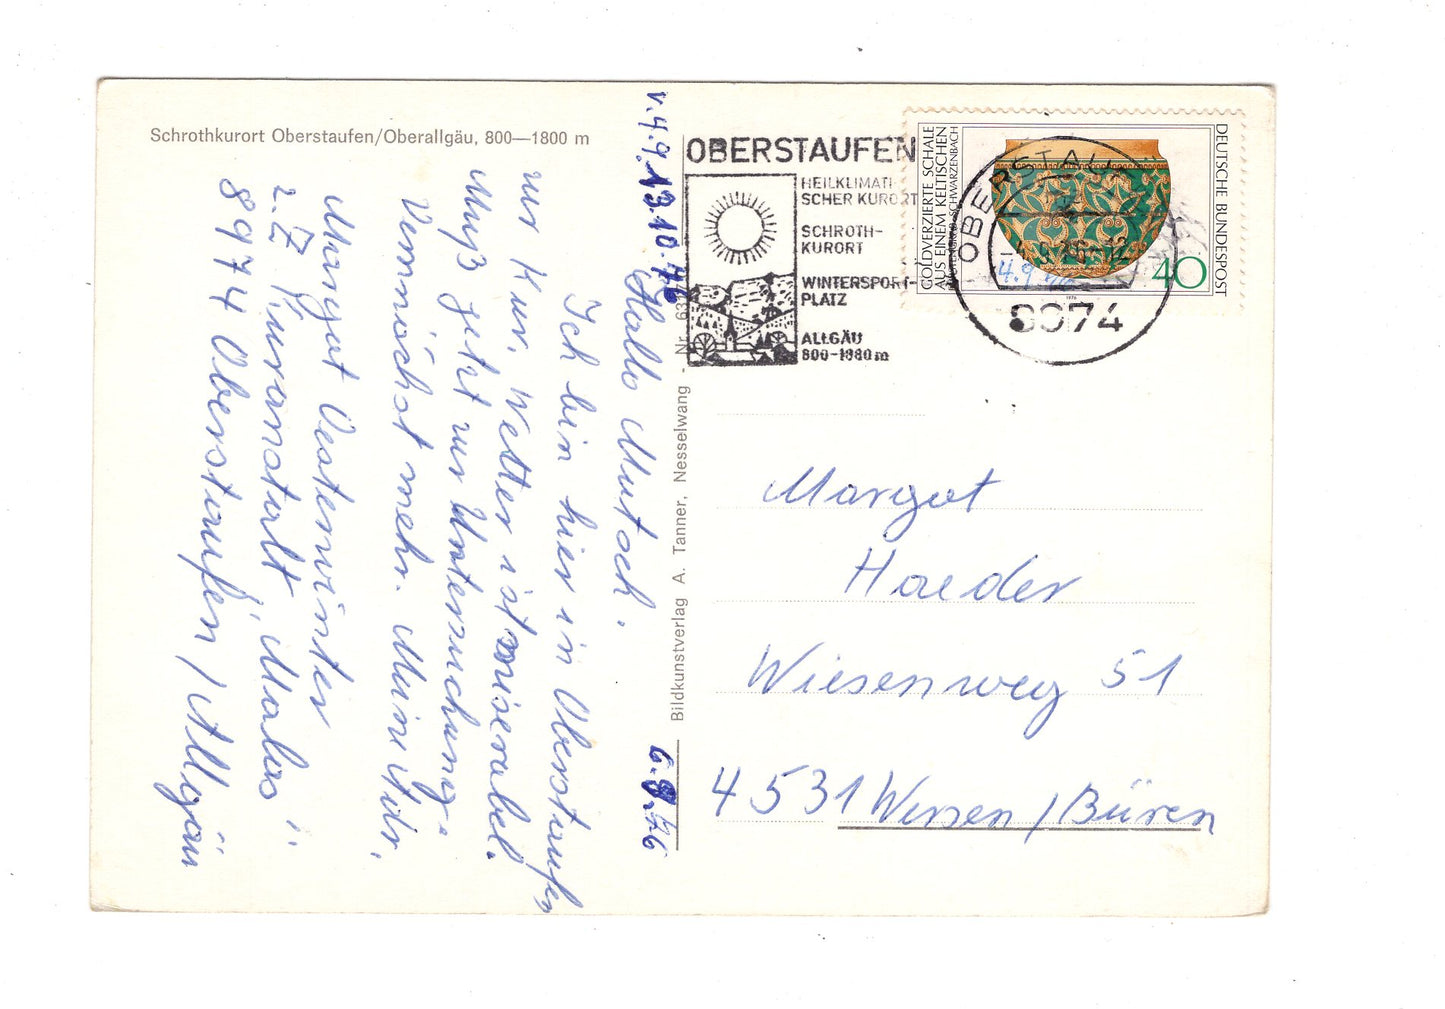 Schrothkurort Oberstaufen/Oberallgäu, 800—1800 m
v. 4.9. 13.10.76
Hallo Mutsch.
Ich bin hier in Oberstaufen
zur Kur, Wetter ist miserabel.
Muß jetzt zur Untersuchung.
Demnächst mehr.
Margot Oesterwinter
z. Z. Kuranstalt
8974 Oberstaufen / Allgäu
6.9.76
Bildkunstverlag A. Tanner, Nesselwang - Nr.
OBERSTAUFEN
HEILKLIMATI
SCHER KURORT
SCHROTH-
KURORT
WINTERSPORT-
PLATZ
ALLGÄU
800-1980 m
GOLDVERZIERTE SCHALE
AUS EINEM KELTISCHEN
SCHWARZENBACH
DEUTSCHE BUNDESPOST
40
OBERSTAU
- 4.9.76-12
8974
4.9.76
Margot
Haeder
Wiesenweg 51
4531 Wersen / Büren